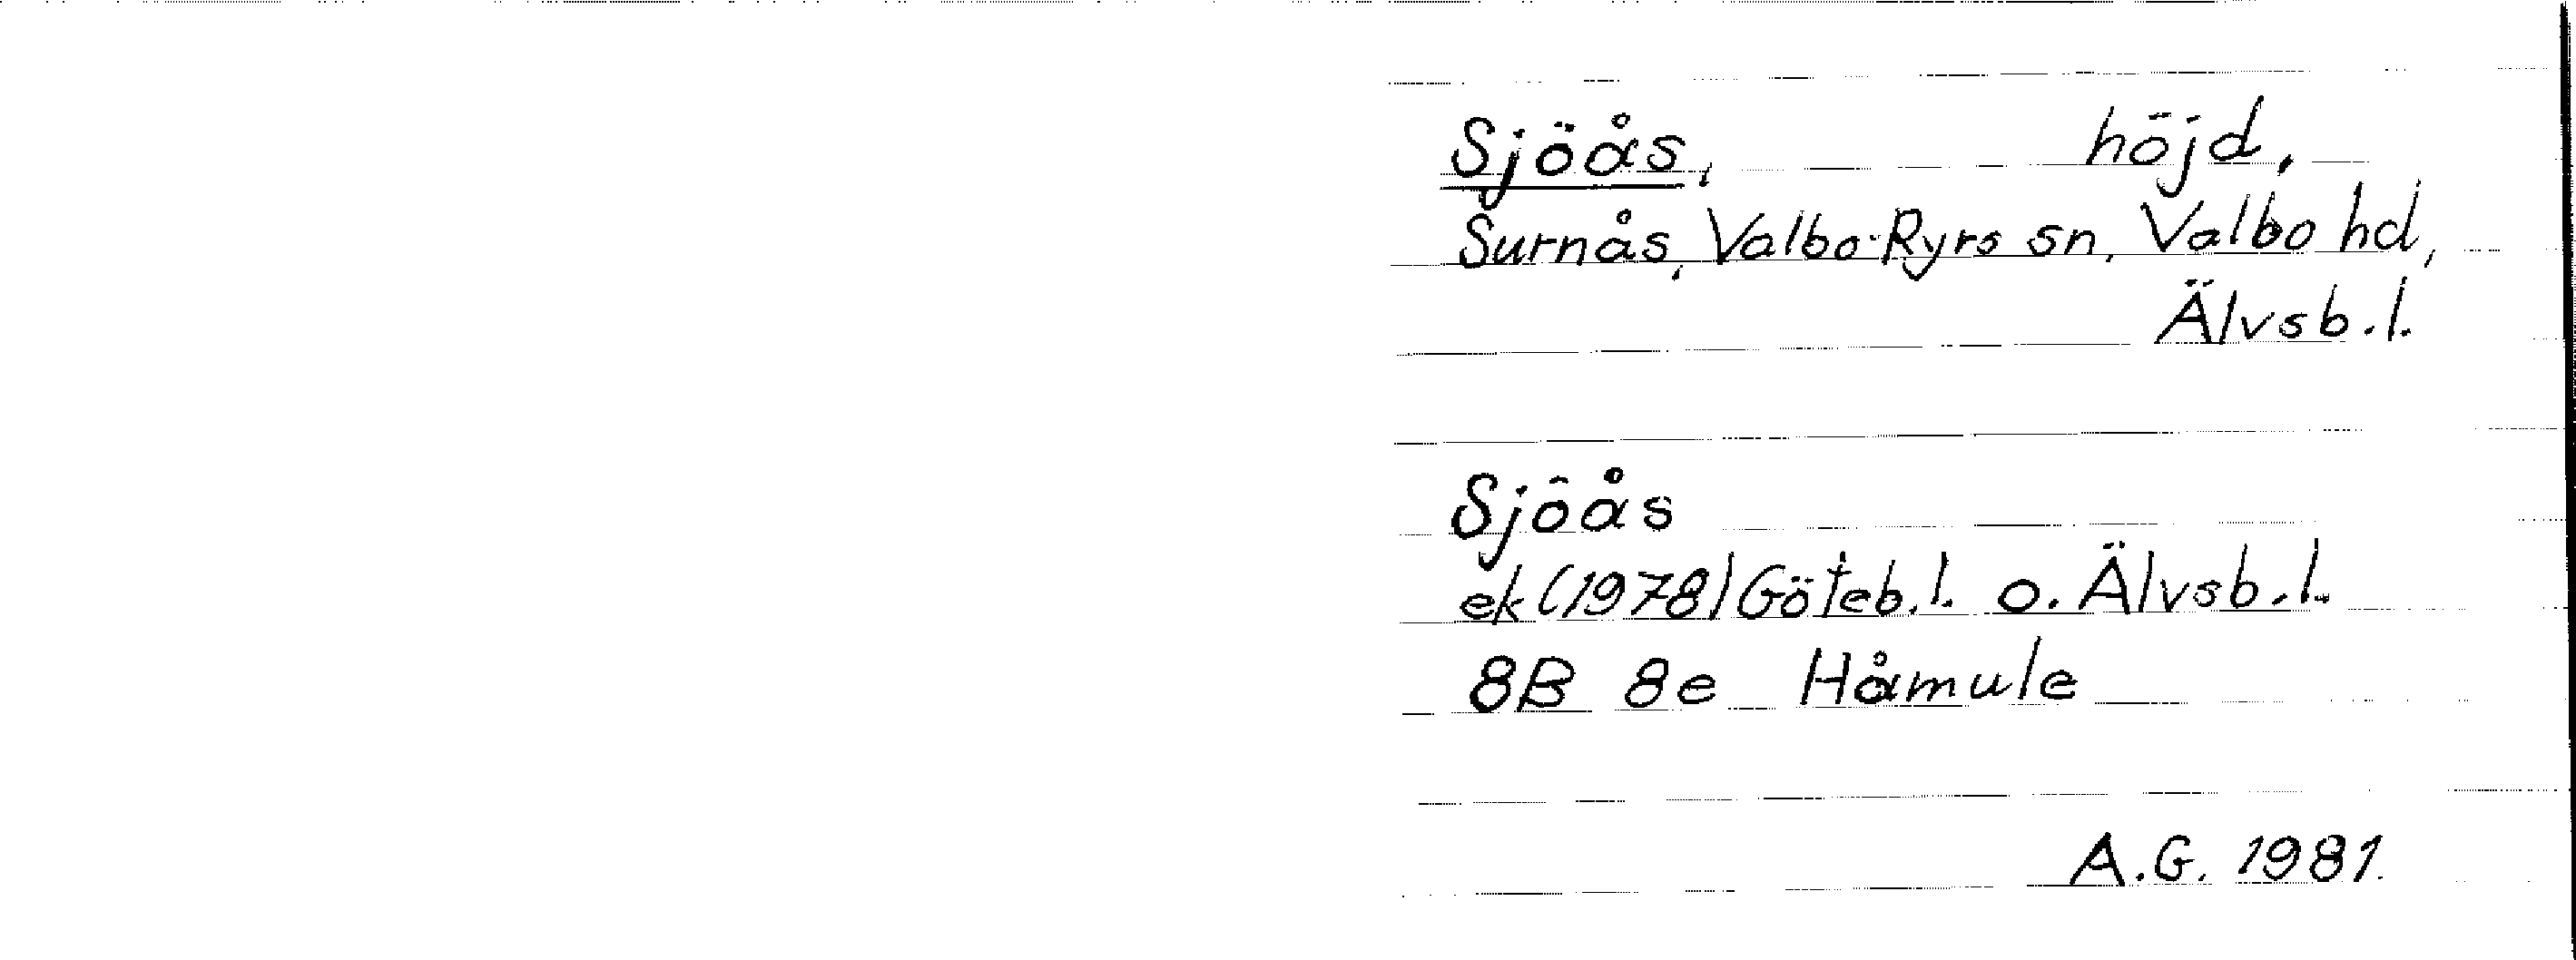 Sjöås, höjd,
Surnås, Valbo-Ryrs sn, Valbo hd,
Älvsb.l.
Sjöås
ek (1978) Göteb.l. o. Älvsb.l.
8B 8e Håmule
A.G. 1981.